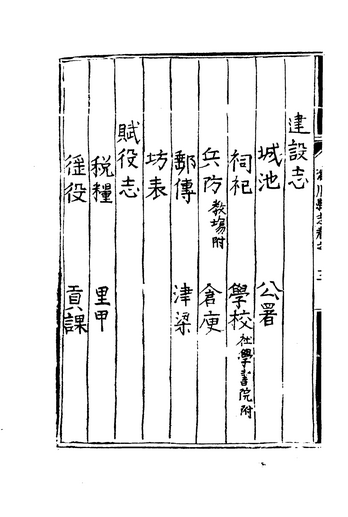 建設志
城池　公署
祠祀　學校社學書院附
兵防教場附　倉庾
郵傳　津梁
坊表
賦役志
稅糧　里甲
徭役　貢課